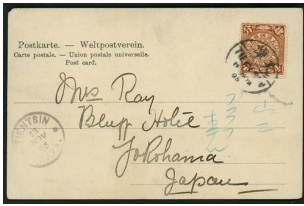 Postkarte. — Weltpostverein.
Carte postale. — Union postale universelle.
Post card.
Mrs Ray
Bluff Hotel
Yokohama
Japan